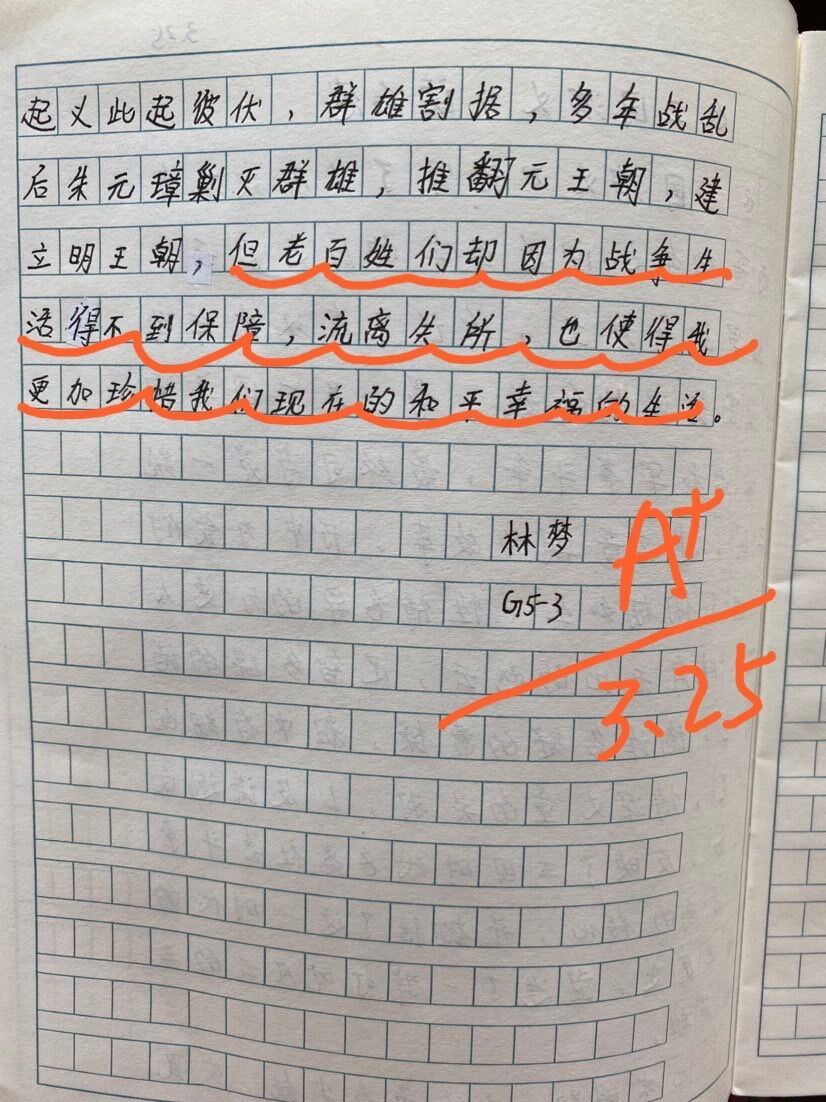 起义此起彼伏，群雄割据，多年战乱
后朱元璋剿灭群雄，推翻元王朝，建
立明王朝，但老百姓们却因为战争生
活得不到保障，流离失所，也使得我
更加珍惜我们现在的和平幸福的生活。
林梦
G5-3
A+
3.25